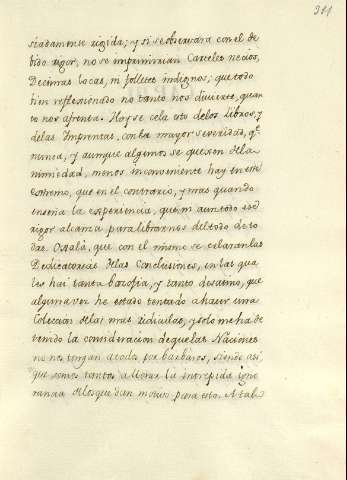 311
siadamente rigida; y si se observara con el de
bido rigor, no se imprimirian Carteles necios,
Decimas locas, ni folletos indignos; que todo
bien reflexionado no tanto nos divierte, quan
to nos afrenta. Hoy se cela esto delos Libros, y
delas Imprentas, con la mayor severidad, qe.
nunca, y aunque algunos se quexen dela
nimiedad, menos inconveniente hay en este
extremo, que en el contrario, y mas quando
enseña la experiencia, que ni aun todo ese
rigor alcanza para librarnos del todo de to
das. Oxalá, que con el mismo se celaran las
Dedicatorias delas Conclusiones, en las qua
les hai tanta bazofia, y tanto desatino, que
alguna vez he estado tentado a hacer una
Coleccion delas mas ridiculas, y solo me ha de
tenido la consideracion de que las Naciones
no nos tengan atodos por barbaros, siendo asi,
que somos tantos a llorar la intrepida igno
rancia delos que dan motivo para esto. A tal